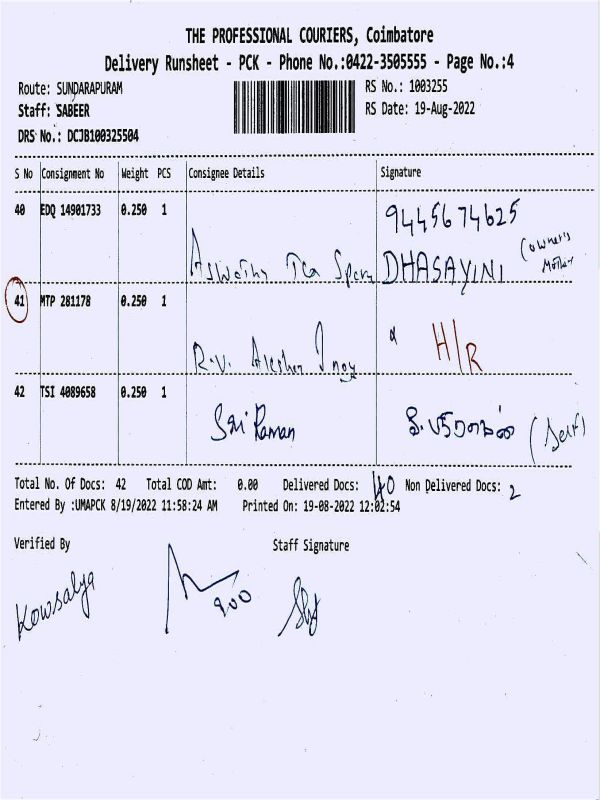 THE PROFESSIONAL COURIERS, Coimbatore
Delivery Runsheet - PCK - Phone No.:0422-3505555 - Page No.:4
Route: SUNDARAPURAM RS No.: 1003255
Staff: SABEER RS Date: 19-Aug-2022
DRS No.: DCJB100325504
S No Consignment No Weight PCS Consignee Details Signature
40 EDQ 14901733 0.250 1 9445674625
Aswathy Tea DHASAYINI (owner's Mother
41 MTP 281178 0.250 1 H/R
R.V.
42 TSI 4089658 0.250 1 Sri Raman (Self)
Total No. Of Docs: 42 Total COD Amt: 0.00 Delivered Docs: 40 Non Delivered Docs: 2
Entered By :UMAPCK 8/19/2022 11:58:24 AM Printed On: 19-08-2022 12:02:54
Verified By Staff Signature
Kowsalya 900